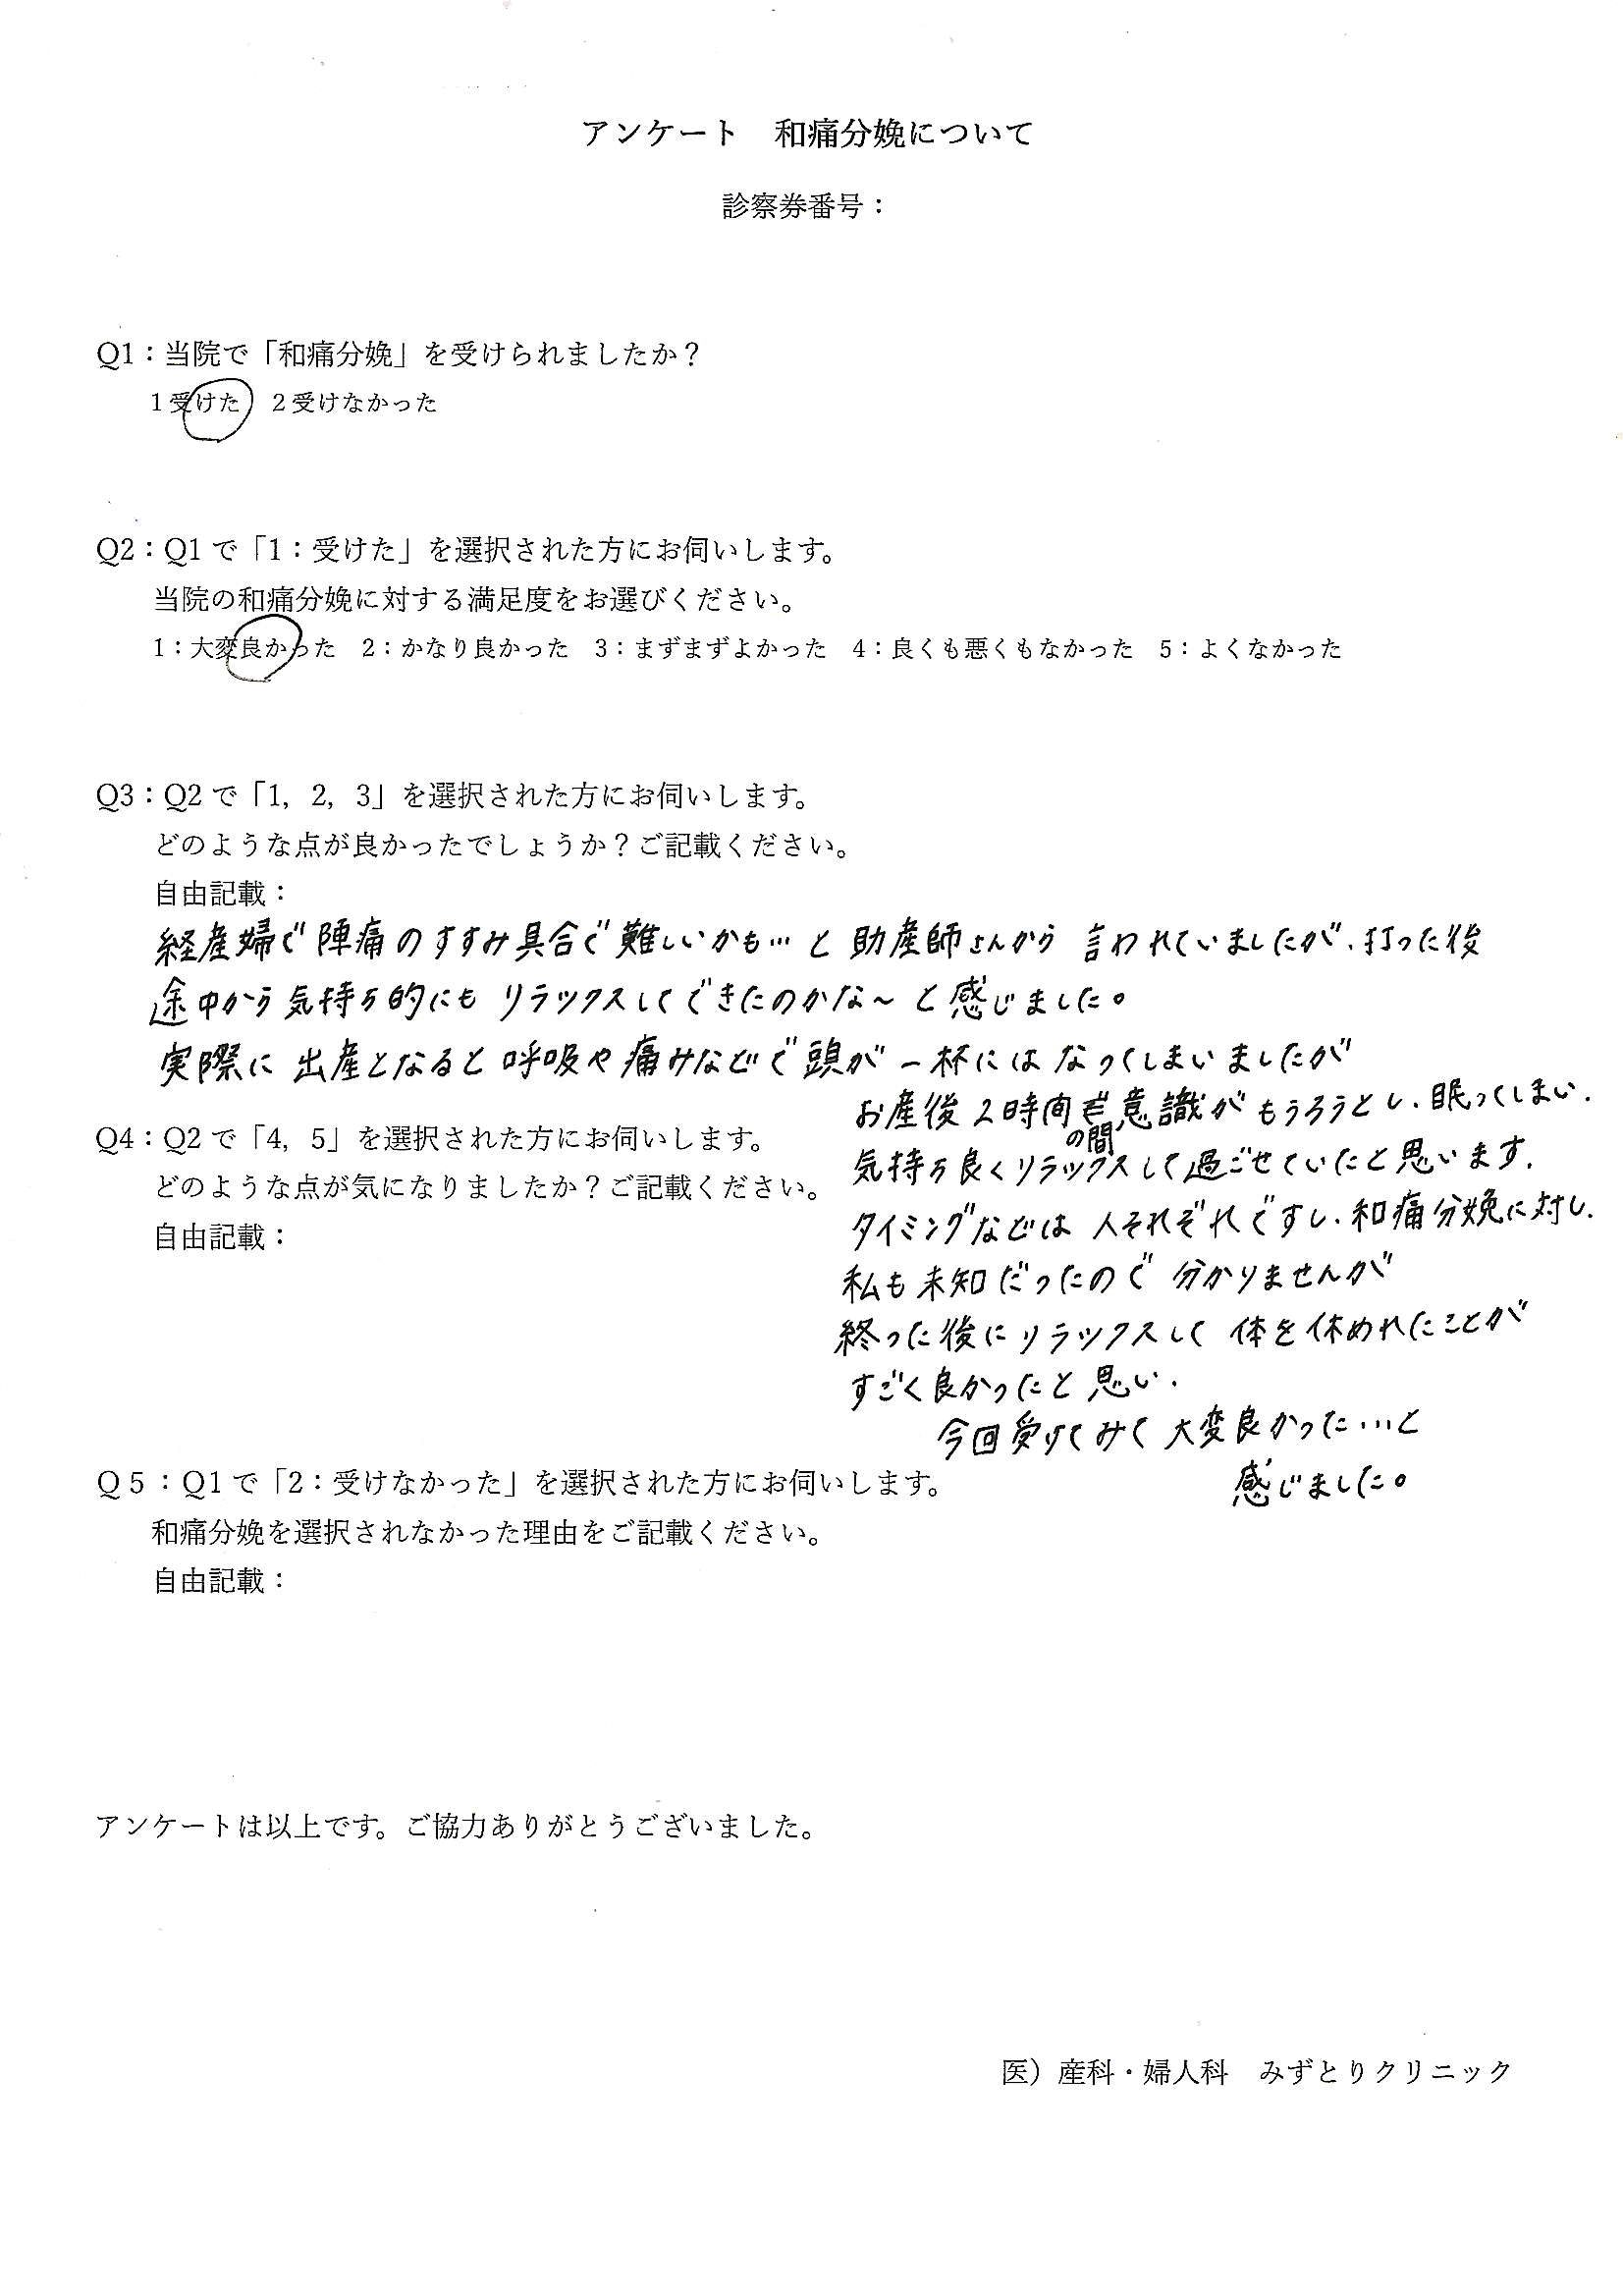 アンケート　和痛分娩について
診察券番号：
Q1：当院で「和痛分娩」を受けられましたか？
1 受けた　2 受けなかった
Q2：Q1 で「1：受けた」を選択された方にお伺いします。
当院の和痛分娩に対する満足度をお選びください。
1：大変良かった　2：かなり良かった　3：まずまずよかった　4：良くも悪くもなかった　5：よくなかった
Q3：Q2 で「1，2，3」を選択された方にお伺いします。
どのような点が良かったでしょうか？ご記載ください。
自由記載：
経産婦で陣痛のすすみ具合で難しいかも…と助産師さんから言われていましたが、打った後
途中から気持ち的にもリラックスしてできたのかな～と感じました。
実際に出産となると呼吸や痛みなどで頭が一杯にはなってしまいましたが
お産後2時間の間意識がもうろうとし、眠ってしまい、
気持ち良くリラックスして過ごせていたと思います。
タイミングなどは人それぞれですし、和痛分娩に対し、
私も未知だったので分かりませんが
終った後にリラックスして体を休めれたことが
すごく良かったと思い、
今回受けてみて大変良かった…と
感じました。
Q4：Q2 で「4，5」を選択された方にお伺いします。
どのような点が気になりましたか？ご記載ください。
自由記載：
Q５：Q1 で「2：受けなかった」を選択された方にお伺いします。
和痛分娩を選択されなかった理由をご記載ください。
自由記載：
アンケートは以上です。ご協力ありがとうございました。
医）産科・婦人科　みずとりクリニック